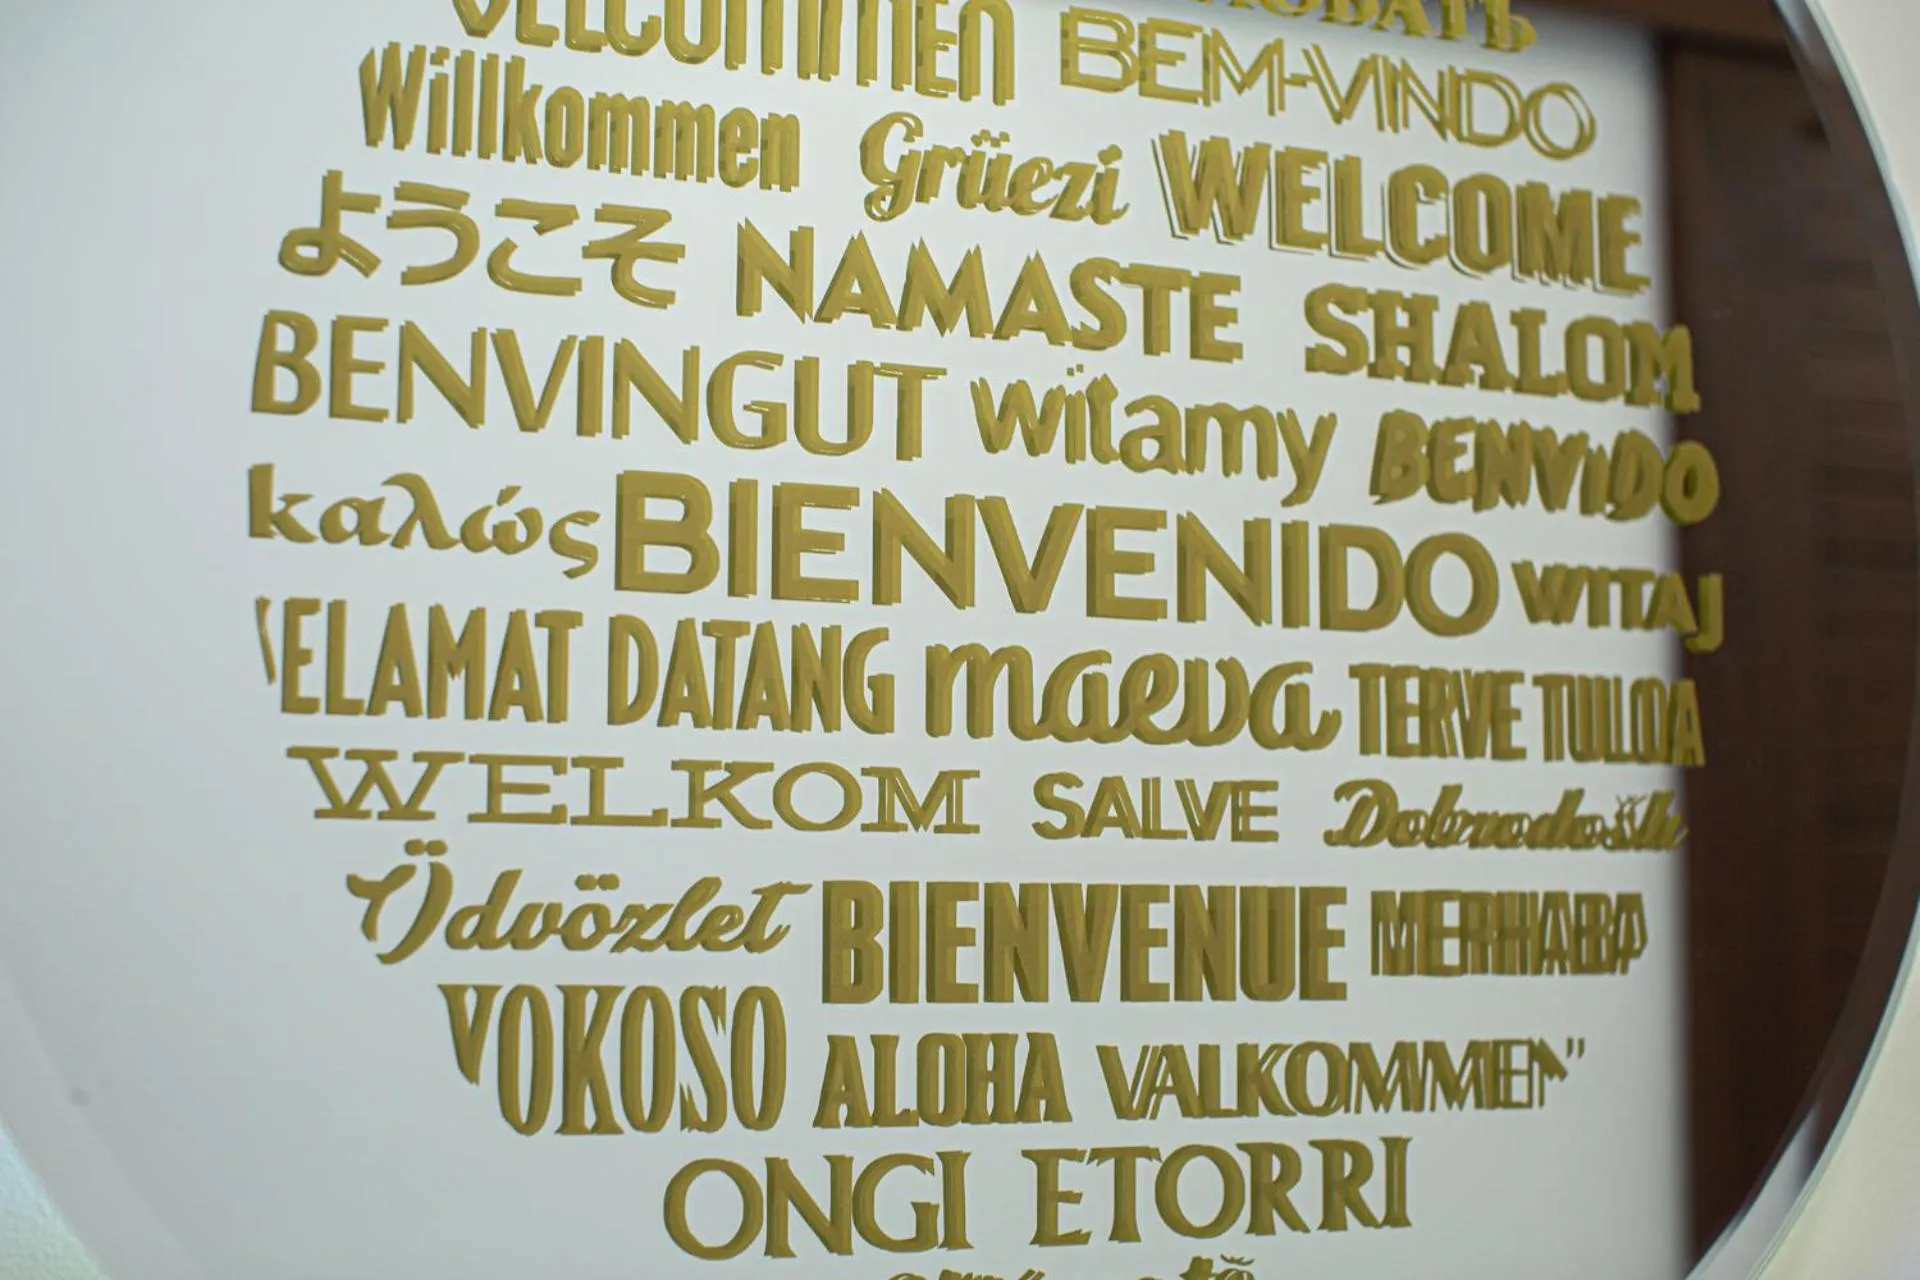 VELCOMMEN BEM-VINDO
Willkommen Grüezi WELCOME
ようこそ NAMASTE SHALOM
BENVINGUT witamy BENVIDO
καλώς BIENVENIDO WITAJ
SELAMAT DATANG maeva TERVE TULOA
WELKOM SALVE Dobrodošli
Üdvözlet BIENVENUE MERHABA
YOKOSO ALOHA VALKOMMEN"
ONGI ETORRI